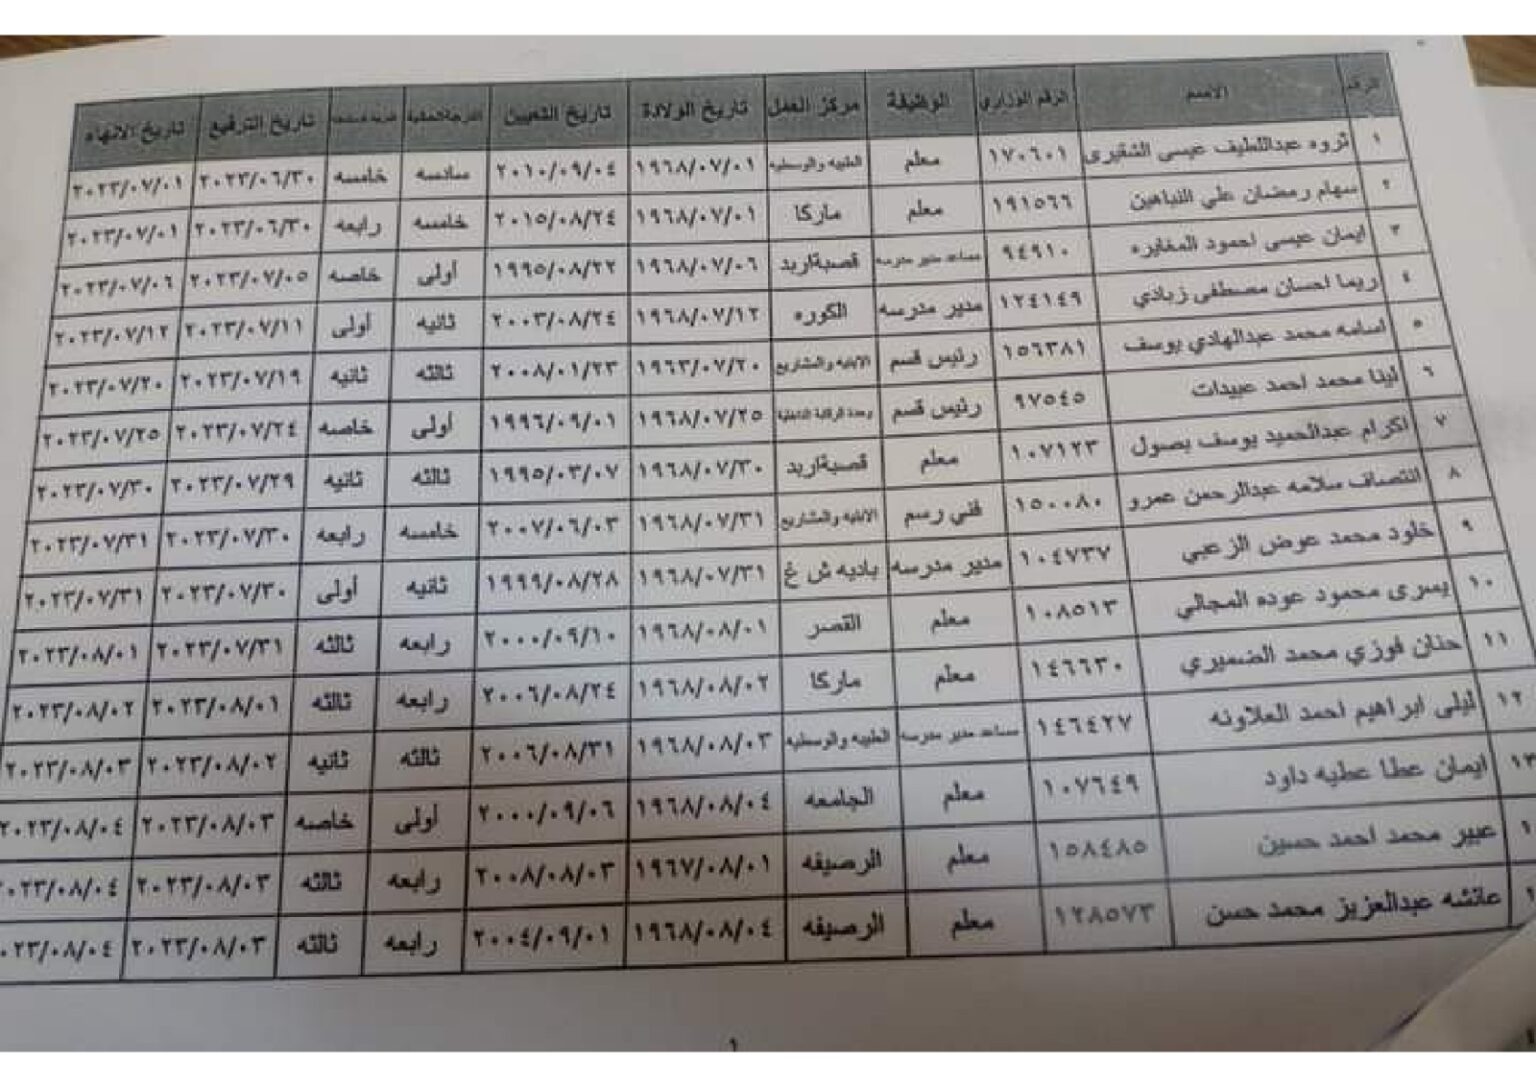 الرقم الاسم الرقم الوزاري الوظيفة مركز العمل تاريخ الولادة تاريخ التعيين الدرجة الحالية تاريخ الترفيع تاريخ الانهاء
١ ثروه عبداللطيف عيسى الشقيرى ١٧٠٦٠١ معلم الطيبه والوسطيه ١٩٦٨/٠٧/٠١ ٢٠١٠/٠٩/٠٤ سادسه خامسه ٢٠٢٣/٠٦/٣٠ ٢٠٢٣/٠٧/٠١
٢ سهام رمضان علي النباهين ١٩١٥٦٦ معلم ماركا ١٩٦٨/٠٧/٠١ ٢٠١٥/٠٨/٢٤ خامسه رابعه ٢٠٢٣/٠٦/٣٠ ٢٠٢٣/٠٧/٠١
٣ ايمان عيسى احمود المغايره ٩٤٩١٠ مساعد مدير مدرسه قصبةاربد ١٩٦٨/٠٧/٠٦ ١٩٩٥/٠٨/٢٢ أولى خاصه ٢٠٢٣/٠٧/٠٥ ٢٠٢٣/٠٧/٠٦
٤ ريما احسان مصطفى زبادي ١٢٤١٤٩ مدير مدرسه الكوره ١٩٦٨/٠٧/١٢ ٢٠٠٣/٠٨/٢٤ ثانيه أولى ٢٠٢٣/٠٧/١١ ٢٠٢٣/٠٧/١٢
٥ اسامه محمد عبدالهادي يوسف ١٥٦٣٨١ رئيس قسم الابنيه والمشاريع ١٩٦٣/٠٧/٢٠ ٢٠٠٨/٠١/٢٣ ثالثه ثانيه ٢٠٢٣/٠٧/١٩ ٢٠٢٣/٠٧/٢٠
٦ لينا محمد احمد عبيدات ٩٧٥٤٥ رئيس قسم وحدة الرقابة الداخلية ١٩٦٨/٠٧/٢٥ ١٩٩٦/٠٩/٠١ أولى خاصه ٢٠٢٣/٠٧/٢٤ ٢٠٢٣/٠٧/٢٥
٧ اكرام عبدالحميد يوسف بصول ١٠٧١٢٣ معلم قصبةاربد ١٩٦٨/٠٧/٣٠ ١٩٩٥/٠٣/٠٧ ثالثه ثانيه ٢٠٢٣/٠٧/٢٩ ٢٠٢٣/٠٧/٣٠
٨ انتصاف سلامه عبدالرحمن عمرو ١٥٠٠٨٠ فني رسم الابنيه والمشاريع ١٩٦٨/٠٧/٣١ ٢٠٠٧/٠٦/٠٣ خامسه رابعه ٢٠٢٣/٠٧/٣٠ ٢٠٢٣/٠٧/٣١
٩ خلود محمد عوض الزعبي ١٠٤٧٣٧ مدير مدرسه باديه ش غ ١٩٦٨/٠٧/٣١ ١٩٩٩/٠٨/٢٨ ثانيه أولى ٢٠٢٣/٠٧/٣٠ ٢٠٢٣/٠٧/٣١
١٠ يسرى محمود عوده المجالي ١٠٨٥١٣ معلم القصر ١٩٦٨/٠٨/٠١ ٢٠٠٠/٠٩/١٠ رابعه ثالثه ٢٠٢٣/٠٧/٣١ ٢٠٢٣/٠٨/٠١
١١ حنان فوزي محمد الضميري ١٤٦٦٣٠ معلم ماركا ١٩٦٨/٠٨/٠٢ ٢٠٠٦/٠٨/٢٤ رابعه ثالثه ٢٠٢٣/٠٨/٠١ ٢٠٢٣/٠٨/٠٢
١٢ ليلى ابراهيم احمد العلاونه ١٤٦٤٢٧ مساعد مدير مدرسه الطيبه والوسطيه ١٩٦٨/٠٨/٠٣ ٢٠٠٦/٠٨/٣١ ثالثه ثانيه ٢٠٢٣/٠٨/٠٢ ٢٠٢٣/٠٨/٠٣
١٣ ايمان عطا عطيه داود ١٠٧٦٤٩ معلم الجامعه ١٩٦٨/٠٨/٠٤ ٢٠٠٠/٠٩/٠٦ أولى خاصه ٢٠٢٣/٠٨/٠٣ ٢٠٢٣/٠٨/٠٤
عبير محمد احمد حسين ١٥٨٤٨٥ معلم الرصيفه ١٩٦٧/٠٨/٠١ ٢٠٠٨/٠٨/٠٣ رابعه ثالثه ٢٠٢٣/٠٨/٠٣ ٢٠٢٣/٠٨/٠٤
عائشه عبدالعزيز محمد حسن ١٢٨٥٧٣ معلم الرصيفه ١٩٦٨/٠٨/٠٤ ٢٠٠٤/٠٩/٠١ رابعه ثالثه ٢٠٢٣/٠٨/٠٣ ٢٠٢٣/٠٨/٠٤
1